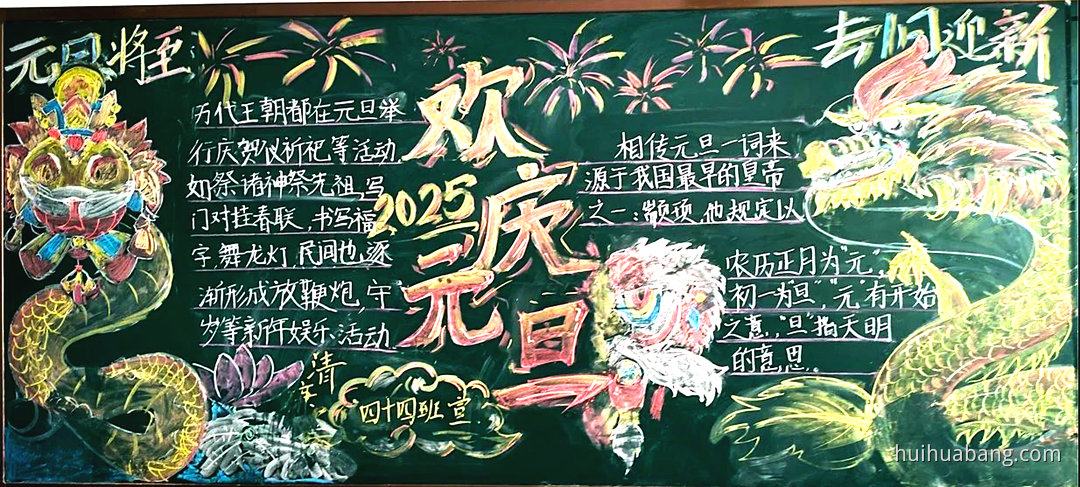 元旦将至
去旧迎新
欢庆
2025
元旦
历代王朝都在元旦举
行庆贺仪祈祀等活动
如祭诸神祭先祖,写
门对挂春联,书写福
字,舞龙灯,民间也逐
渐形成放鞭炮,守
岁等新年娱乐活动
相传元旦一词来
源于我国最早的皇帝
之一:颛顼,他规定以
农历正月为"元",
初一为"旦","元"有开始
之意,"旦"指天明
的意思。
四十四班 宣
huihuabang.com